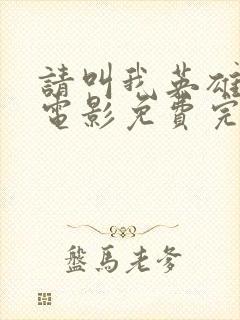 請叫我英雄
電影免費完
盤馬老爹